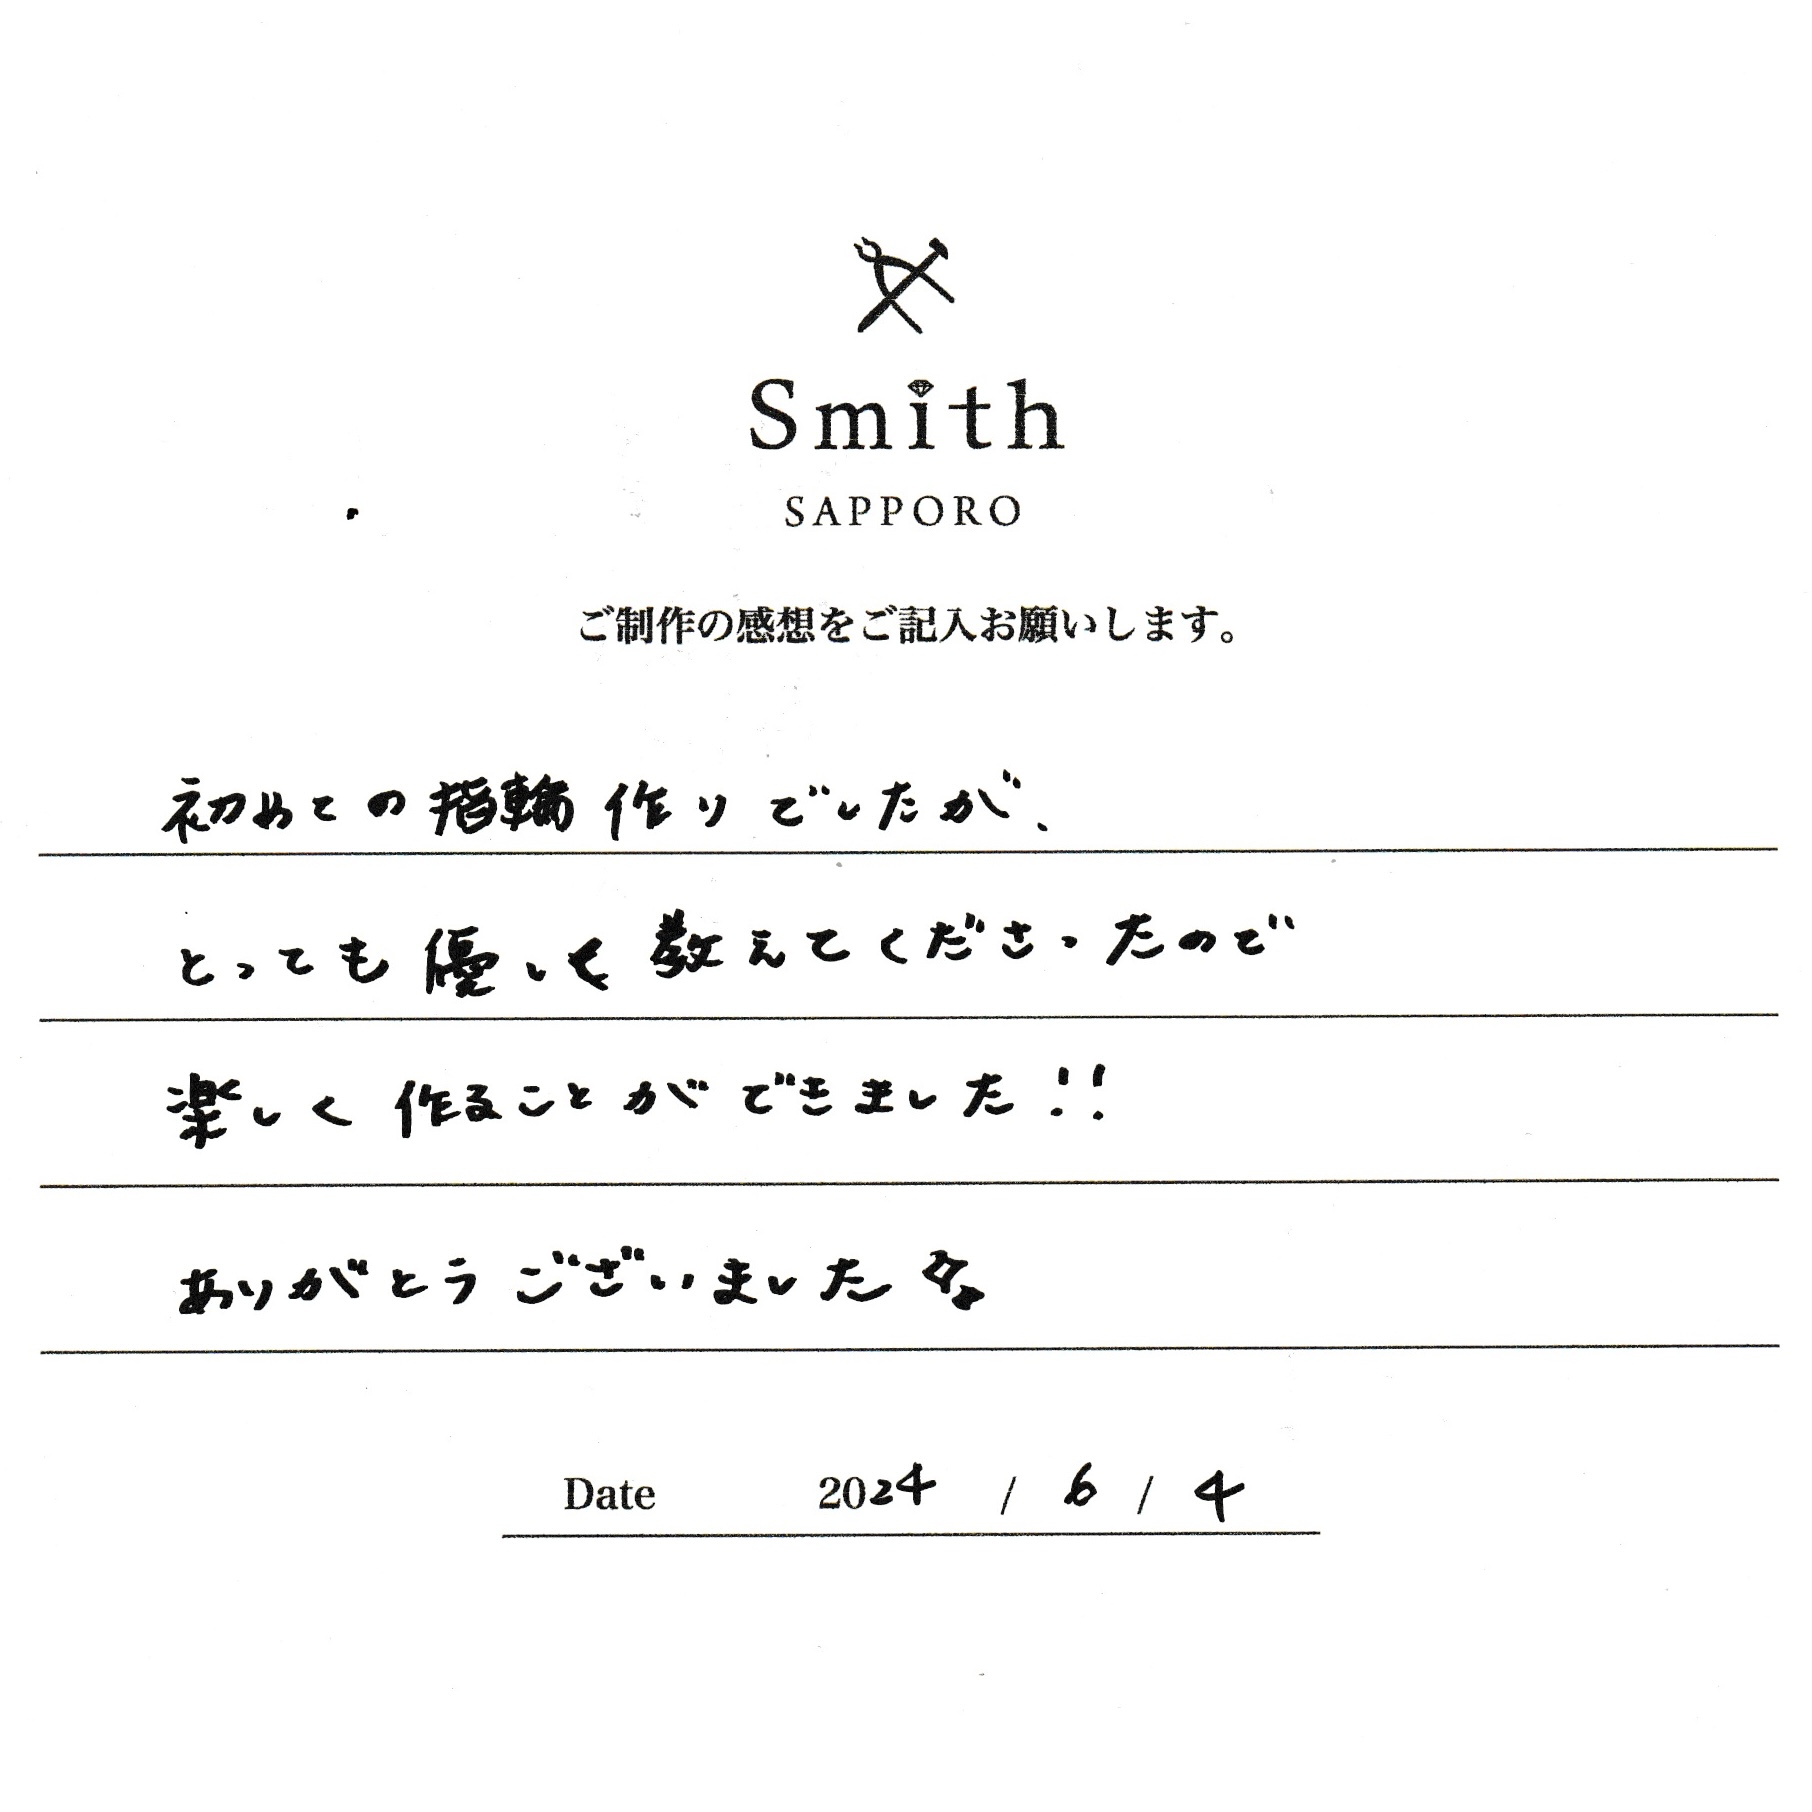 Smith
SAPPORO
ご制作の感想をご記入お願いします。
初めての指輪作りでしたが、
とっても優しく教えてくださったので
楽しく作ることができました!!
ありがとうございました
Date 2024 / 6 / 4